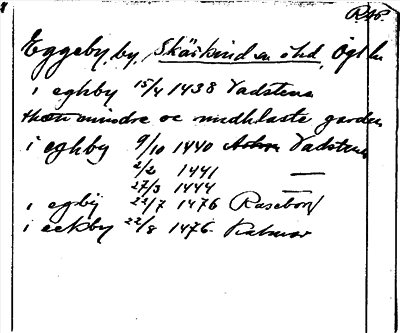 RAp.
Eggeby, by, Skärkind sn o hd, Ögl ln
i eghby 15/4 1438 Vadstena
thæn mindre oc nidhlaste garden
i eghby 9/10 1440 Vadstena
2/2 1441 —
27/3 1444 —
i egby 22/7 1476 Raseborg
i eckby 22/8 1476 Kalmar